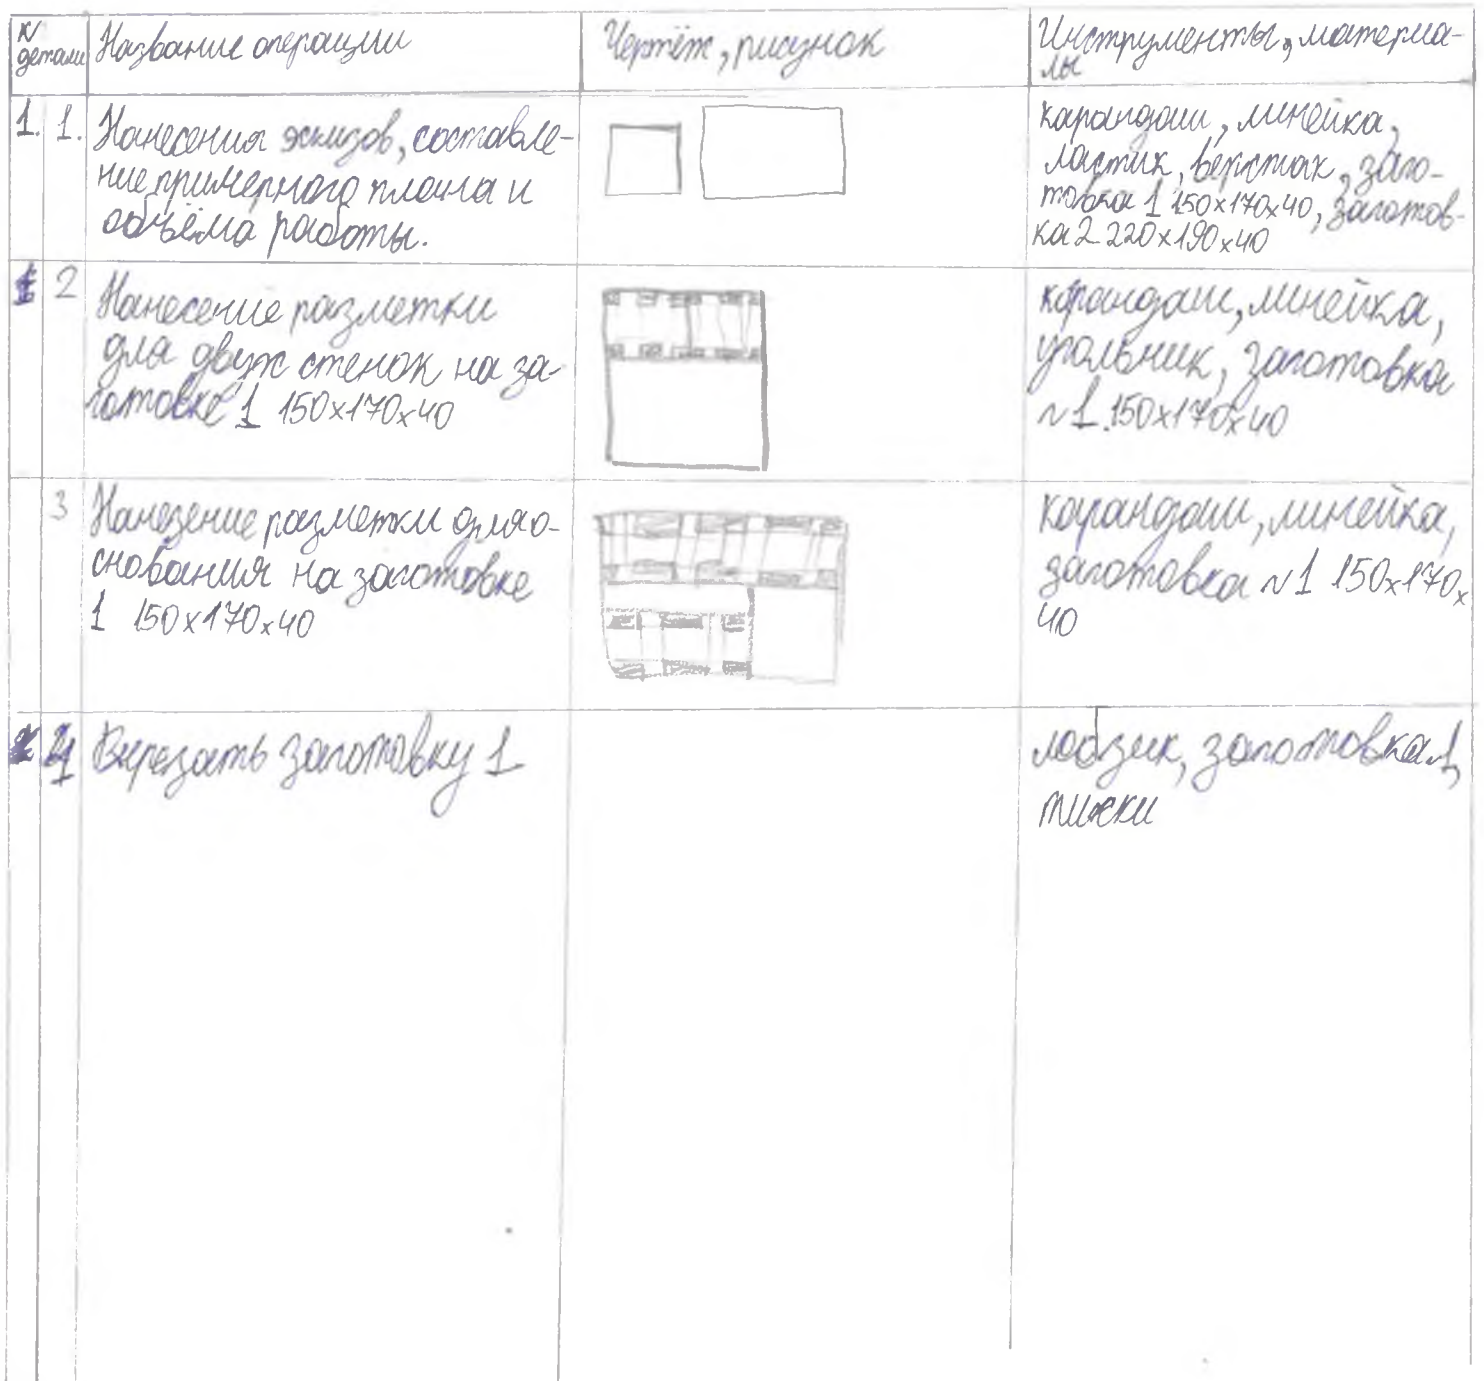 N детали
Название операции
Чертёж, рисунок
Инструменты, материа-
лы
1. 1.
Нанесения эскизов, составле-
ние примерного плана и
объёма работы.
карандаш, линейка,
ластик, верстак, заго-
товка 1 150х170х40, заготов-
ка 2 220х190х40
2
Нанесение разметки
для двух стенок на за-
готовке 1 150х170х40
карандаш, линейка,
угольник, заготовка
№1. 150х170х40
3
Нанезение разметки для о-
снования на заготовке
1 150х170х40
карандаш, линейка,
заготовка №1 150х170х
40
4
Вырезать заготовку 1
лобзик, заготовка 1,
тиски